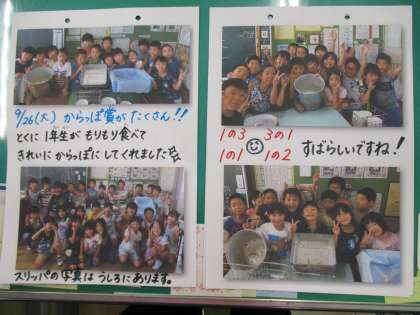 9/26(火) からっぽ賞がたくさん!!
とくに1年生がもりもり食べて
きれいにからっぽにしてくれました
スリッパの写真はうしろにあります。
1の3 3の1
1の1 1の2 すばらしいですね!